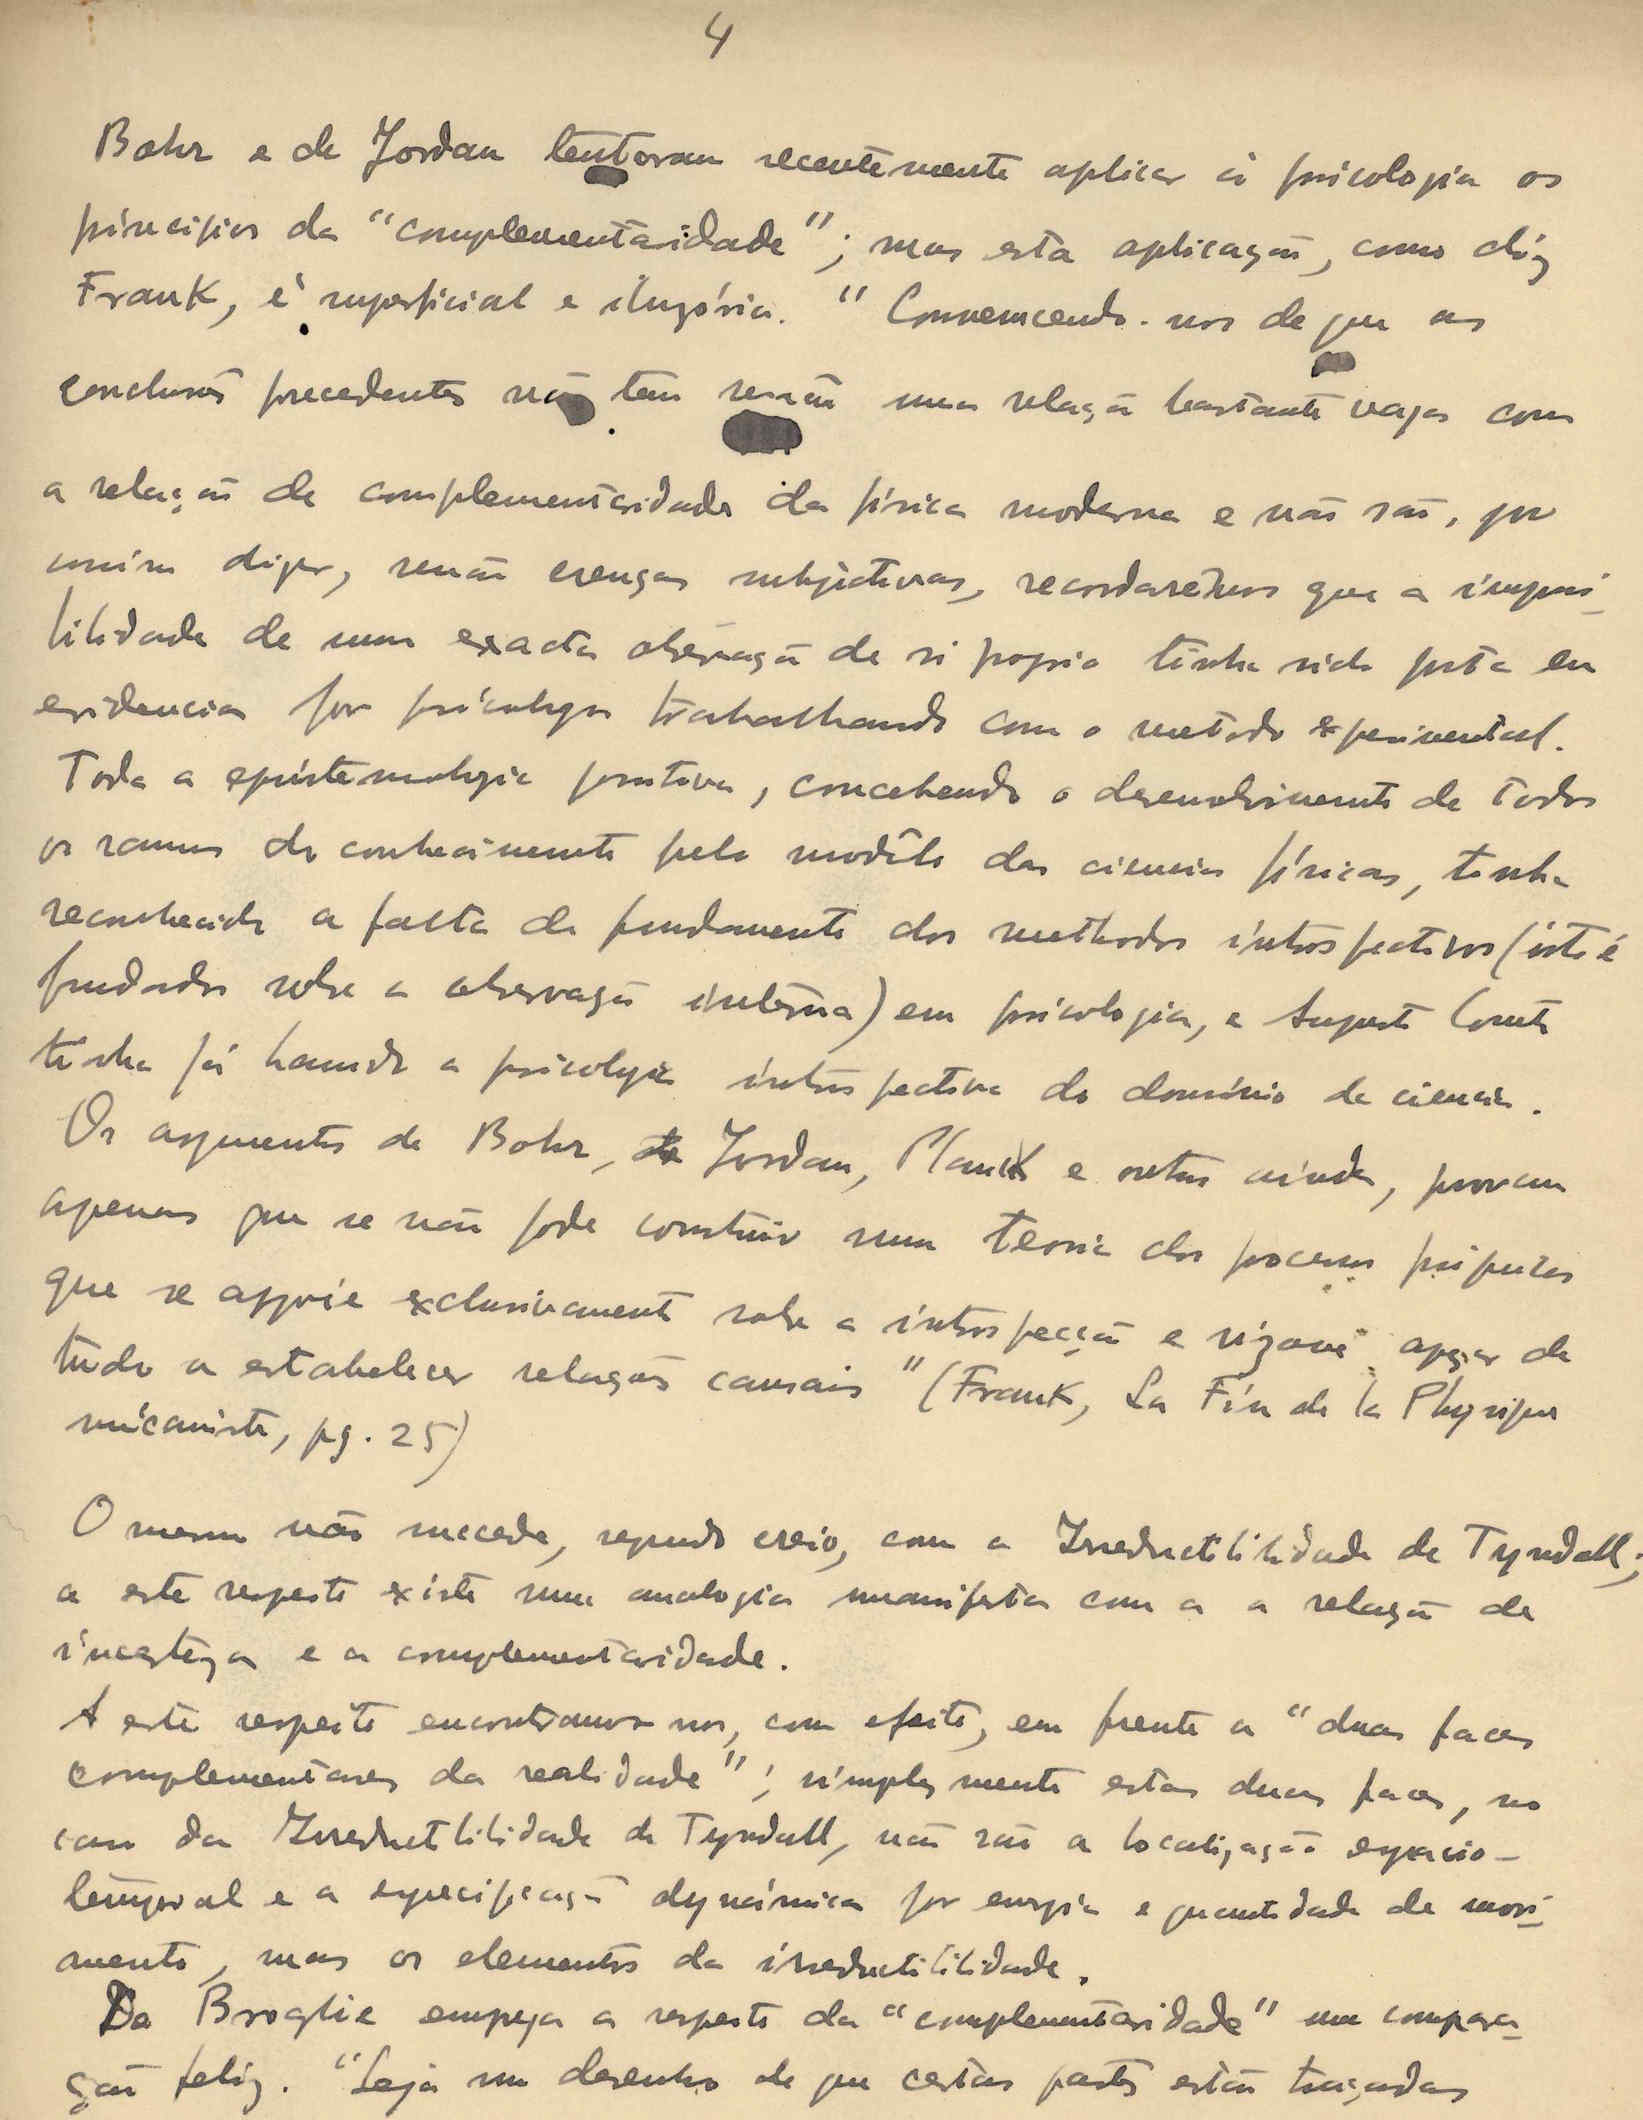 4
Bohr e de Jordan tentaram recentemente aplicar à psicologia os
princípios da "complementaridade"; mas esta aplicação, como diz
Frank, é superficial e ilusória. "Convencendo-nos de que as
conclusões precedentes não têm senão uma relação bastante vaga com
a relação de complementaridade da física moderna e não são, por
assim dizer, senão crenças subjectivas, recordaremos que a impossi-
bilidade de uma exacta observação de si proprio tinha sido posta em
evidencia por psicologos trabalhando com o metodo experimental.
Toda a epistemologia positiva, concebendo o desenvolvimento de todos
os ramos do conhecimento pelo modêlo das ciencias físicas, tinha
reconhecido a falta de fundamento dos methodos introspectivos (isto é
fundados sobre a observação interna) em psicologia, e Augusto Comte
tinha já banido a psicologia introspectiva do domínio da ciencia.
Os argumentos de Bohr, de Jordan, Planck e outros ainda, provam
apenas que se não pode construir uma teoria dos processos psiquicos
que se appoie exclusivamente sobre a introspecção e vizando apezar de
tudo a estabelecer relações causais" (Frank, La Fin de la Physique
mécaniste, pg. 25)
O mesmo não sucede, segundo creio, com a Irreductibilidade de Tyndall;
a este respeito existe uma analogia manifesta com a a relação de
incerteza e a complementaridade.
A este respeito encontramos-nos, com efeito, em frente a "duas faces
complementares da realidade"; simplesmente estas duas faces, no
caso da Irreductibilidade de Tyndall, não são a localização espacio-
temporal e a especificação dynámica por energia e quantidade de movi-
mento, mas os elementos da irreductibilidade.
De Broglie emprega a respeito da "complementaridade" uma compara-
ção feliz. "Seja um desenho de que certas partes estão traçadas